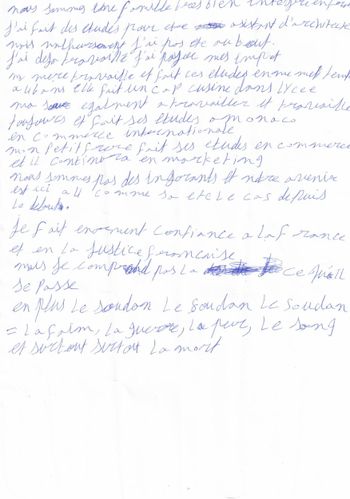 nous sommes une famille très bien intégré en France
j'ai fait des etudes pour etre asistant d'architecte
mais malheursement j'ai pas ete au bout.
j'ai deja travaille j'ai payee mes impot
m mere travaille et fait ces etudes en meme temp
a 46 ans elle fait un CAP cuisine dans lycee
ma soeur egalment a travailler et travaille
toujours et fait ses études a monaco
en commerce internationale
mon petit frere fait ses etudes en commerce
et il continura en marketing
nous sommes pas des ingorants et notre avenire
est ici comme sa ete le cas depuis
le debut.
Je fait enorment confiance a la France
et en la Justice francaise
mais je comprend pas la ce qu'il
se passe
en plus le soudan le soudan le soudan
= la faim, la guerre, la peur, le sang
et surtout surtout la mort